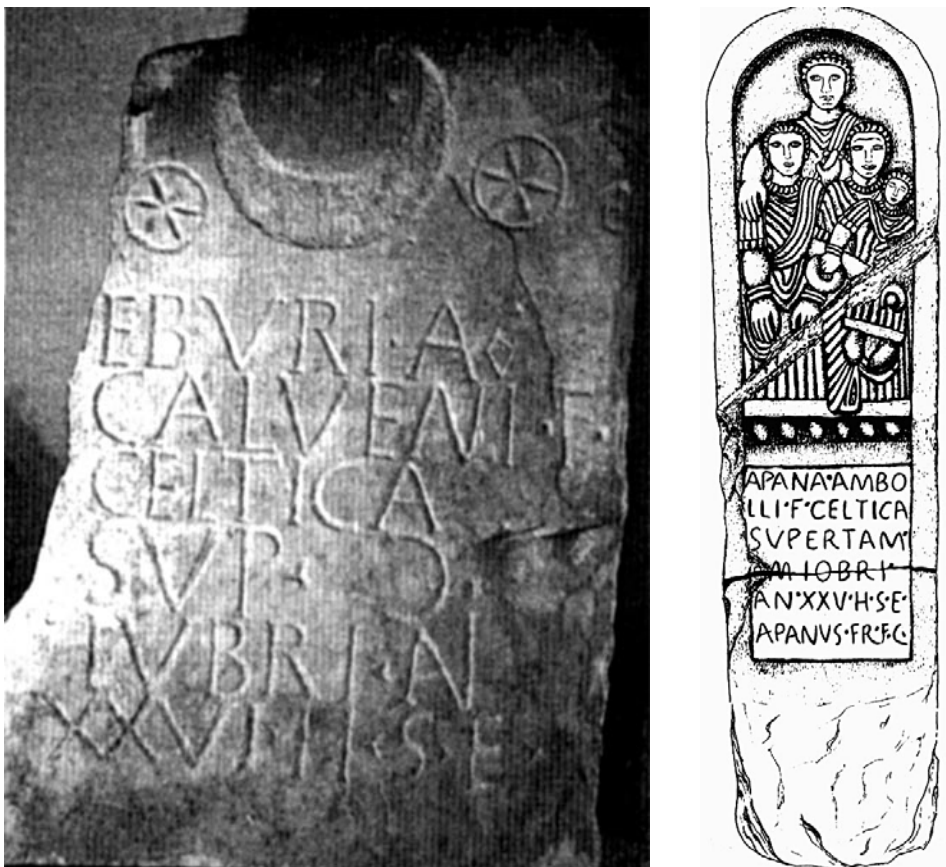 EBVRIA◊
CALVENI·F·
CELTICA
SVP·Ɔ·
LVBRI·AN
XXVI H·S·E·
APANA·AMBO
LLI·F·CELTICA
SVPERTAM·
Ɔ MIOBRI·
AN·XXV·H·S·E·
APANVS·FR·F·C·